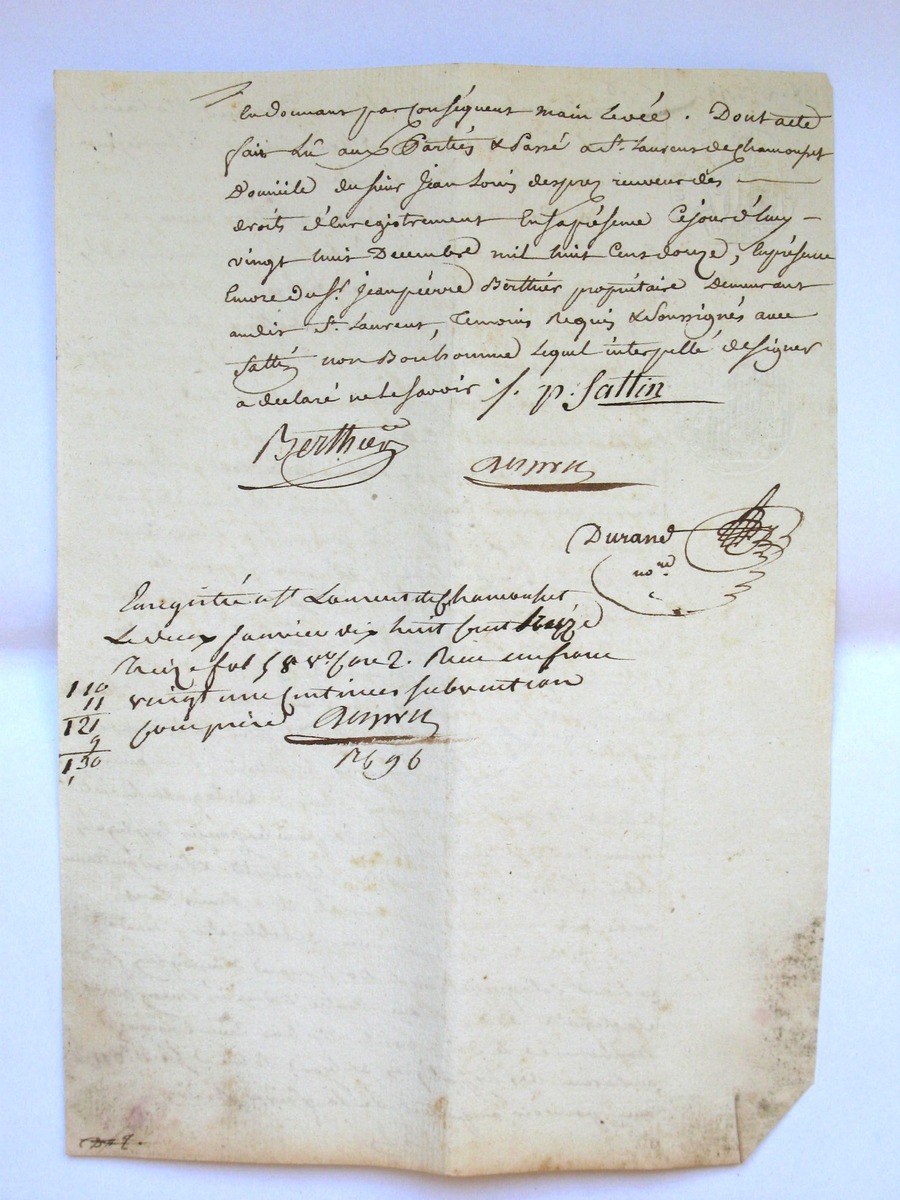 En donnant par Conséquent main Levée. Dont acte
fait Lû aux Parties & Passé a St. Laurent de Chamousset
Domicile du sieur Jean Louis despres receveur des
droits d'Enregistrement En sa présence Ce jour d'huy
vingt huit Decembre mil huit Cent douze, En présence
Encore du Sr. Jean pierre Berthier propriétaire Demeurant
audit St. Laurent, Temoins Requis & Soussignés avec
Sattin non Bonhomme Lequel interpellé de signer
a declaré ne le savoir J. p. Sattin
Berthier
despres
Durand
nore
Enregistré a St Laurent de Chamousset
Le deux Janvier dix huit Cent treize
fol 58 vo Case 2. Recu un franc
vingt une Centimes subvention
Comprise despres
110
11
121
9
1,30
1696